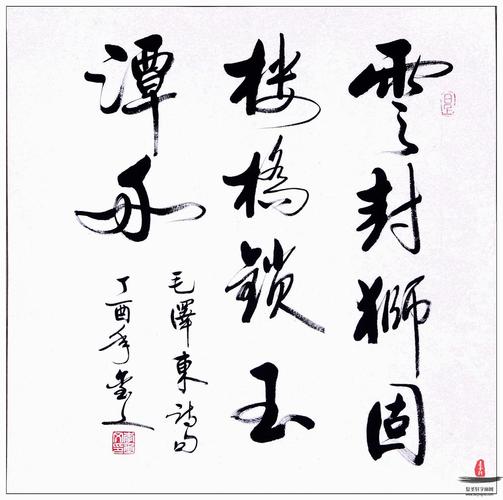 雲封獅固
楼橋鎖玉
潭舟
毛澤東詩句
丁酉年